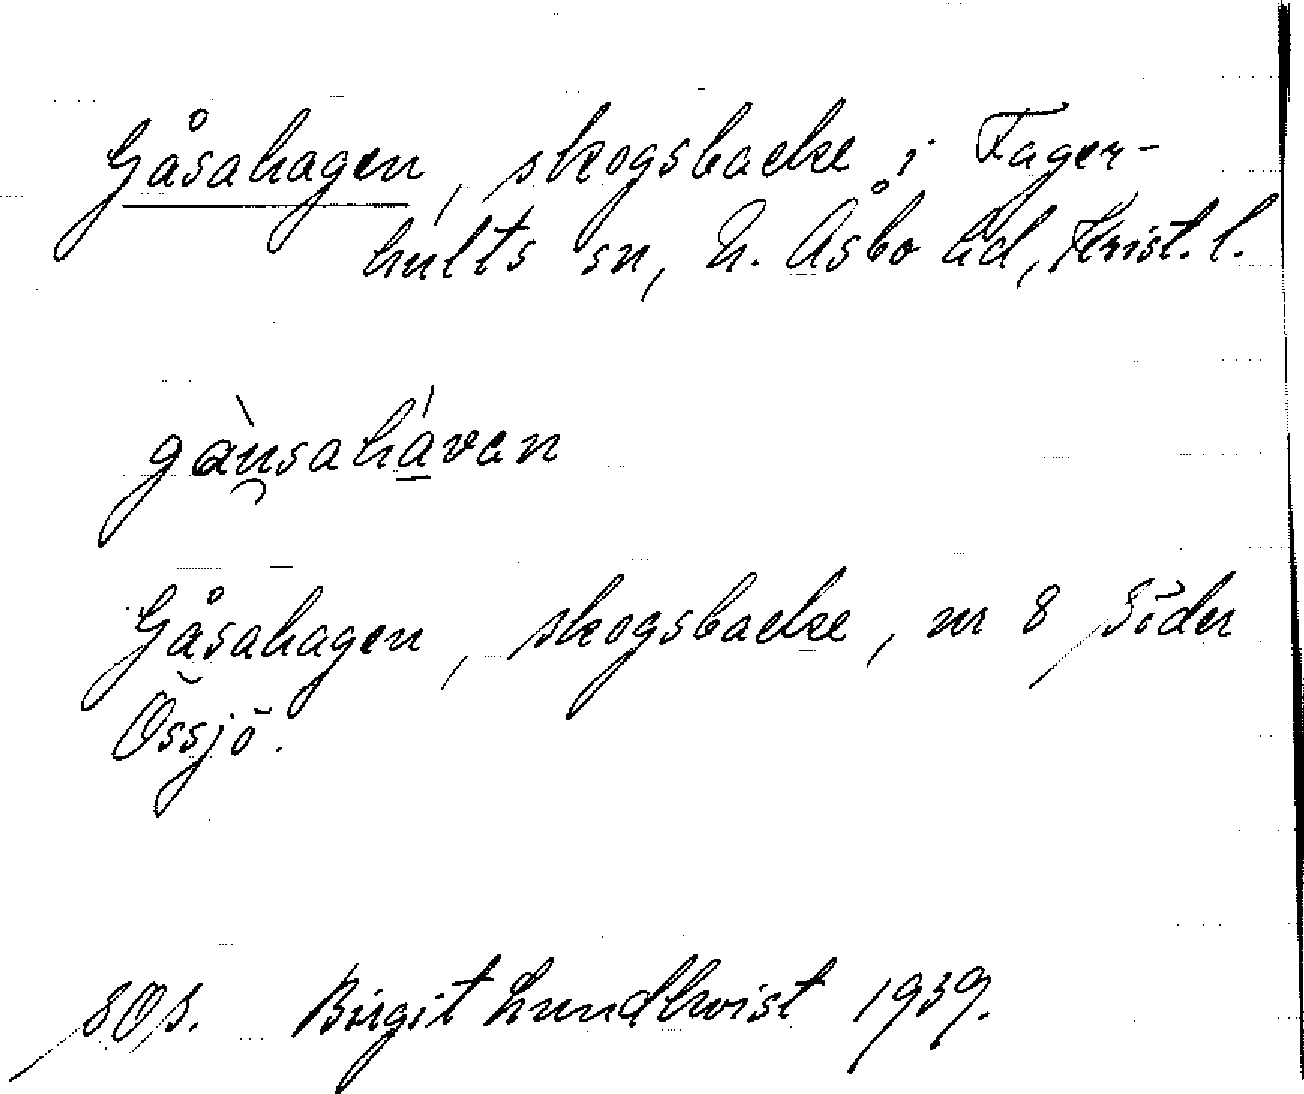 Gåsahagen, skogsbacke i Fager-
hults sn, N. Åsbo hd, Krist. l.
gàu̯sahávan
Gåsahagen, skogsbacke, nr 8 Söder
Össjö.
SOS. Birgit Lundkvist 1939.